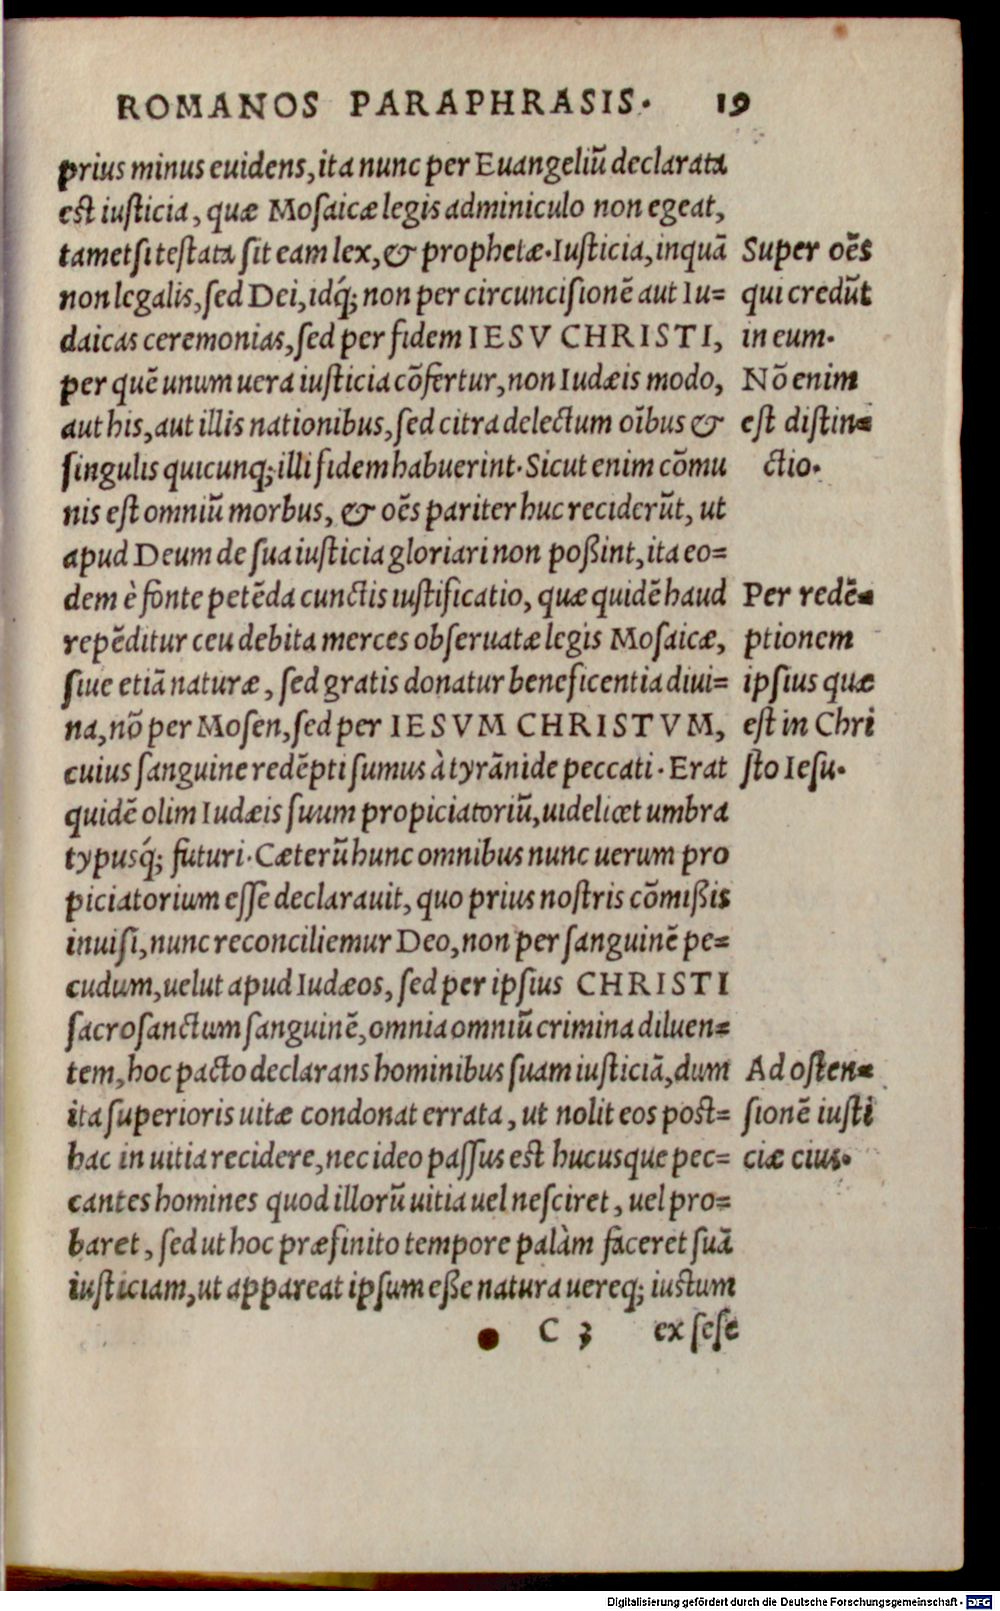 ROMANOS PARAPHRASIS. 19
prius minus euidens, ita nunc per Euangeliū declarata
est iusticia, quæ Mosaicæ legis adminiculo non egeat,
tametsi testata sit eam lex, & prophetæ. Iusticia, inquā
non legalis, sed Dei, idq́; non per circuncisionē aut Iu=
daicas ceremonias, sed per fidem IESV CHRISTI,
per quē unum uera iusticia cōfertur, non Iudæis modo,
aut his, aut illis nationibus, sed citra delectum oībus &
singulis quicunq; illi fidem habuerint. Sicut enim cōmu
nis est omniū morbus, & oēs pariter huc reciderūt, ut
apud Deum de sua iusticia gloriari non poßint, ita eo=
dem è fonte petēda cunctis iustificatio, quæ quidē haud
repēditur ceu debita merces obseruatæ legis Mosaicæ,
siue etiā naturæ, sed gratis donatur beneficentia diui=
na, nō per Mosen, sed per IESVM CHRISTVM,
cuius sanguine redēpti sumus à tyrānide peccati. Erat
quidē olim Iudæis suum propiciatoriū, uidelicet umbra
typusq́; futuri. Cæterū hunc omnibus nunc uerum pro
piciatorium esse declarauit, quo prius nostris cōmißis
inuisi, nunc reconciliemur Deo, non per sanguinē pe=
cudum, uelut apud Iudæos, sed per ipsius CHRISTI
sacrosanctum sanguinē, omnia omniū crimina diluen=
tem, hoc pacto declarans hominibus suam iusticiā, dum
ita superioris uitæ condonat errata, ut nolit eos post=
hac in uitia recidere, nec ideo passus est hucusque pec=
cantes homines quod illorū uitia uel nesciret, uel pro=
baret, sed ut hoc præfinito tempore palàm faceret suā
iusticiam, ut appareat ipsum eße natura uereq; iustum
C 3 ex sese
Super oēs
qui credūt
in eum.
Nō enim
est distin=
ctio.
Per redē=
ptionem
ipsius quæ
est in Chri
sto Iesu.
Ad osten=
sionē iusti
ciæ eius.
Digitalisierung gefördert durch die Deutsche Forschungsgemeinschaft - DFG